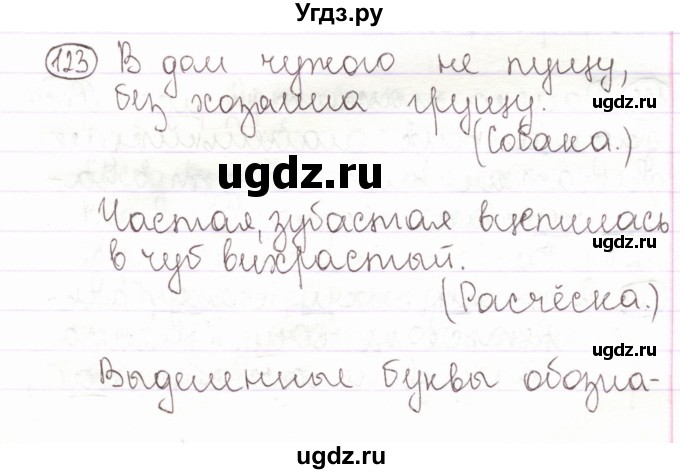 Угдз.ру
123 В дом чужого не пущу,
угдз.ру
без хозяина грущу.
(Собака.)
ugdz.ru
Частая, зубастая вцепилась
угдз.ру
в чуб вихрастый.
(Расчёска.)
угдз.ру
Выделенные буквы обозна-
ugdz.ru